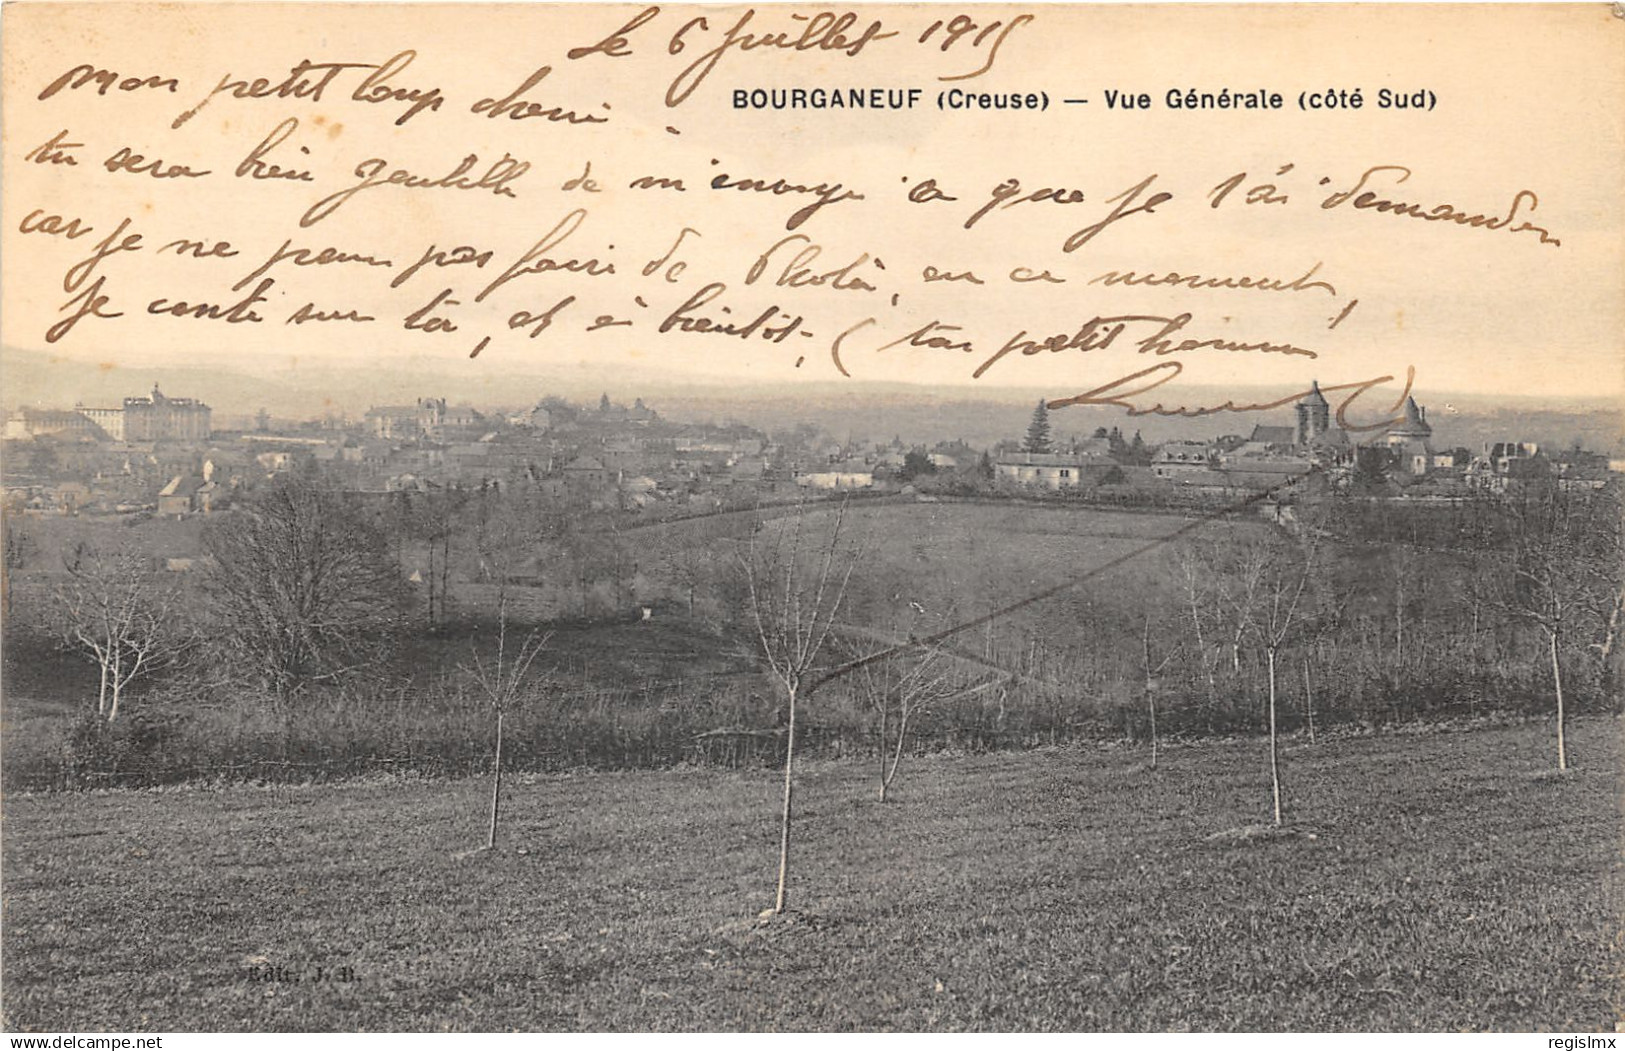 le 6 juillet 1915
BOURGANEUF (Creuse) — Vue Générale (côté Sud)
mon petit loup cherie
tu sera bien gentille de m'envoye a que je t'ai demander
car je ne peau pas faire de Photo, en ce moment,
je conte sur toi, et à bientôt, ton petit homme
Edit. J. B.
delcampe.net
regislmx